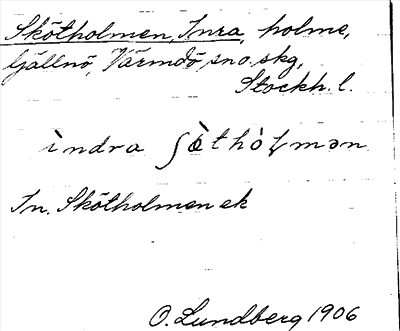 Skötholmen, Inra, holme,
Gällnö, Värmdö, sno. skg,
Stockh. l.
ìndra ʃæ̀thòɫmən
In. Skötholmen ek
O. Lundberg 1906